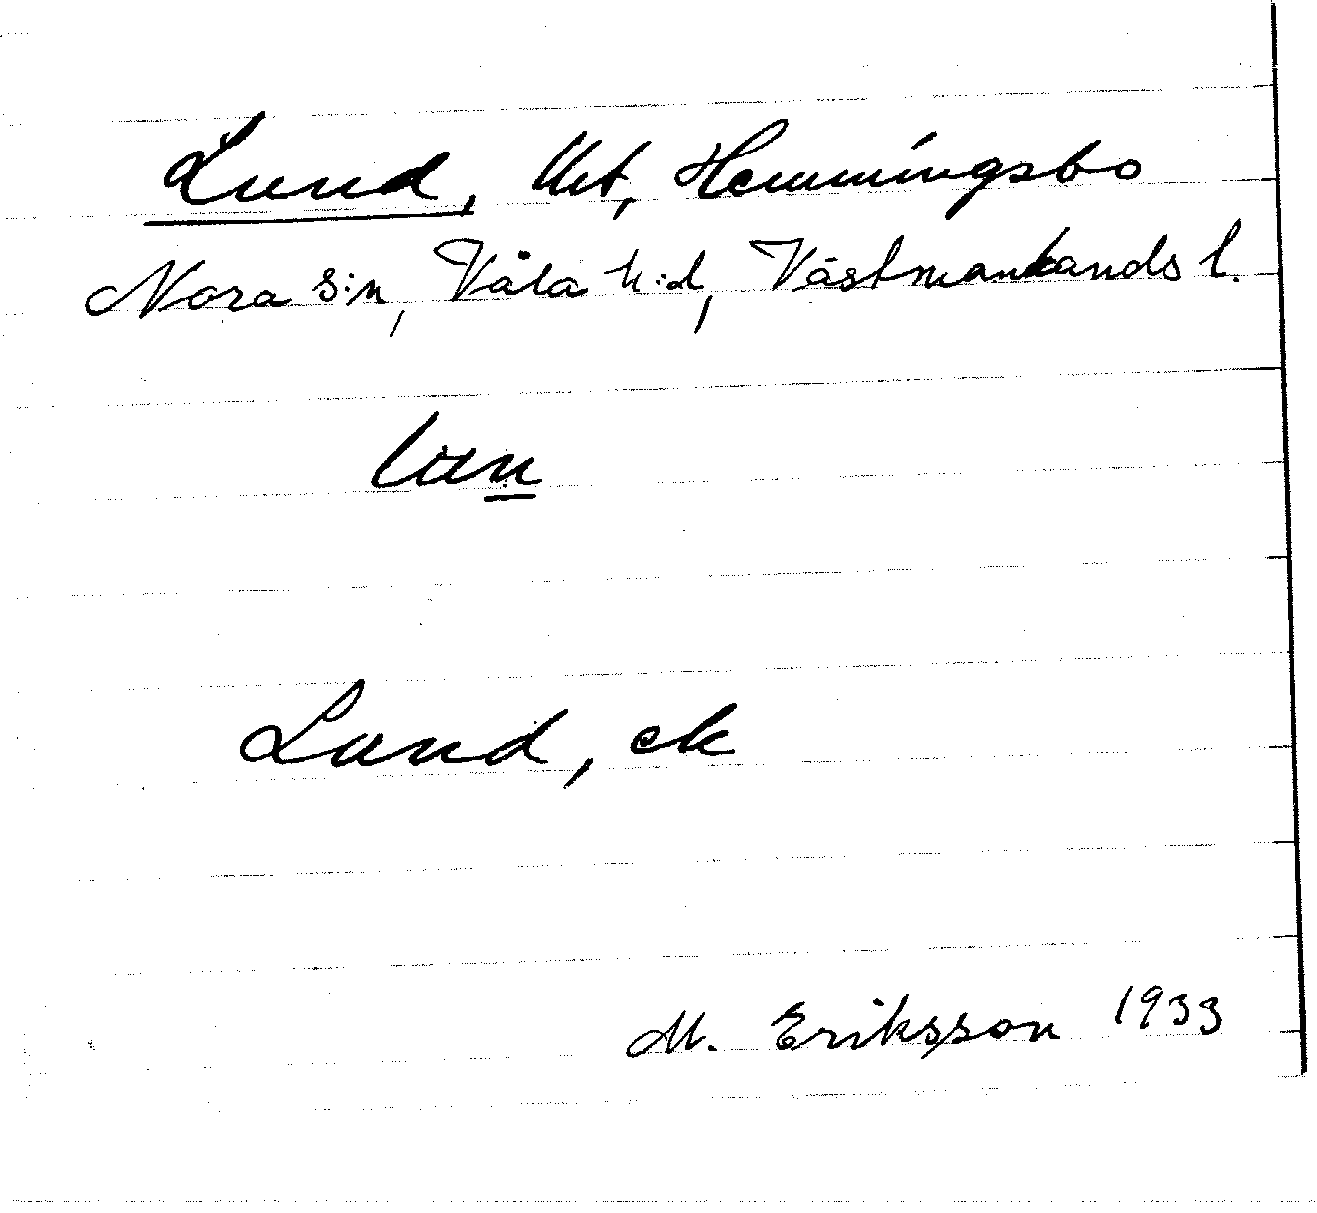 Lund, Urt, Hemmingsbo
Nora s:n, Våla h:d, Västmanlands l.
Lund, ek
M. Eriksson 1933